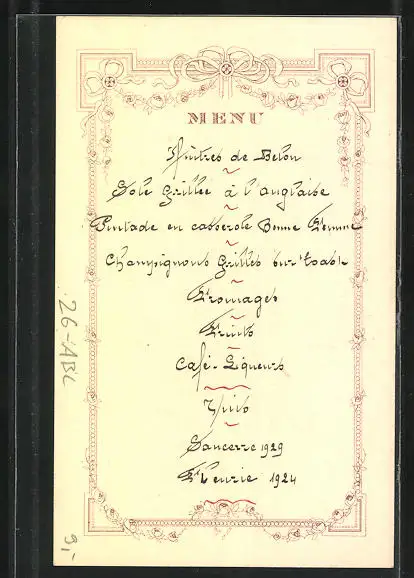 MENU
Huîtres de Belon
Sole Grillée à l'anglaise
Pintade en casserole Bonne Femme
Champignons Grillés sur toast
Fromages
Fruits
Café - Liqueurs
Vins
Sancerre 1929
Fleurie 1924
26-ABC